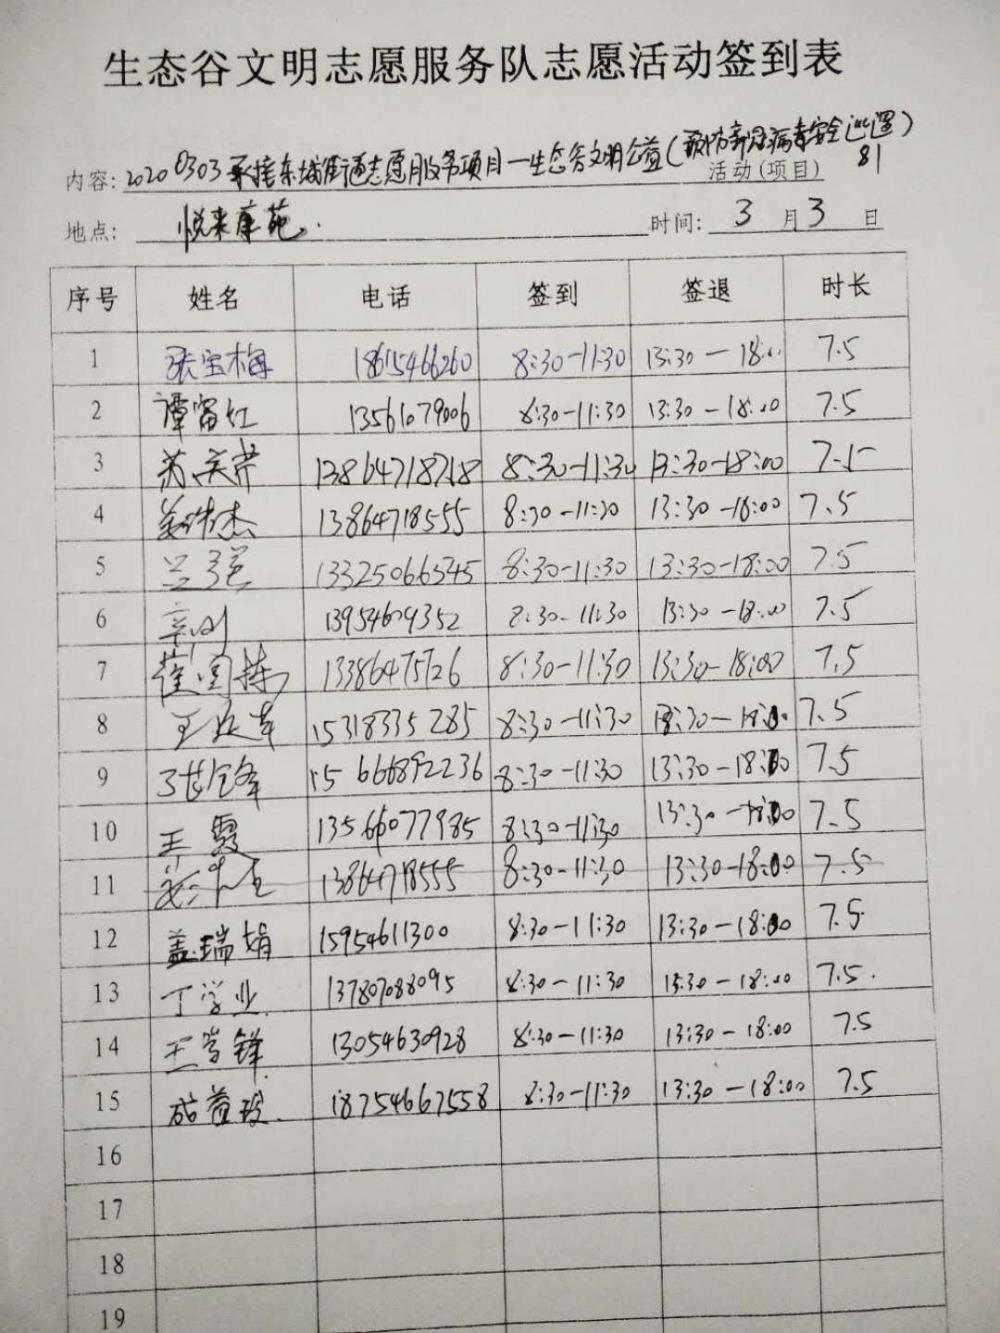 生态谷文明志愿服务队志愿活动签到表
内容: 20200303承接东城街道志愿服务项目—生态谷文明公益(预防新冠病毒安全巡逻)81
活动(项目)
地点: 悦来庄苑. 时间: 3月3日
序号 姓名 电话 签到 签退 时长
1 张宝梅 18615466260 8:30-11:30 13:30-18:00 7.5
2 谭富红 13561079006 8:30-11:30 13:30-18:00 7.5
3 13864718718 8:30-11:30 13:30-18:00 7.5
4 姜沛杰 13864718555 8:30-11:30 13:30-18:00 7.5
5 兰强 13325066545 8:30-11:30 13:30-18:00 7.5
6 13954609352 8:30-11:30 13:30-18:00 7.5
7 崔国栋 13386475726 8:30-11:30 13:30-18:00 7.5
8 15318335285 8:30-11:30 13:30-18:00 7.5
9 15666892236 8:30-11:30 13:30-18:00 7.5
10 王霞 13566077985 8:30-11:30 13:30-18:00 7.5
11 13864718555 8:30-11:30 13:30-18:00 7.5
12 盖瑞娟 15954611300 8:30-11:30 13:30-18:00 7.5
13 丁学业 13780708095 8:30-11:30 13:30-18:00 7.5.
14 王学锋 13054630928 8:30-11:30 13:30-18:00 7.5
15 成益段. 18754667558 8:30-11:30 13:30-18:00 7.5
16
17
18
19